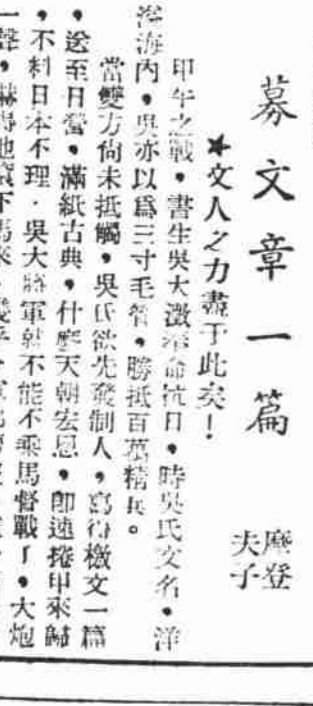 募文章一篇
摩登
夫子
★文人之力盡于此矣!
甲午之戰，書生吳大澂奉命抗日，時吳氏文名，洋
洋海內，吳亦以爲三寸毛筆，勝抵百萬精兵。
當雙方尙未抵觸，吳氏欲先發制人，寫得檄文一篇
，送至日營，滿紙古典，什麽天朝宏恩，卽速捲甲來歸
，不料日本不理．吳大將軍就不能不乘馬督戰了，大炮
一聲，嚇得他滾下馬來，